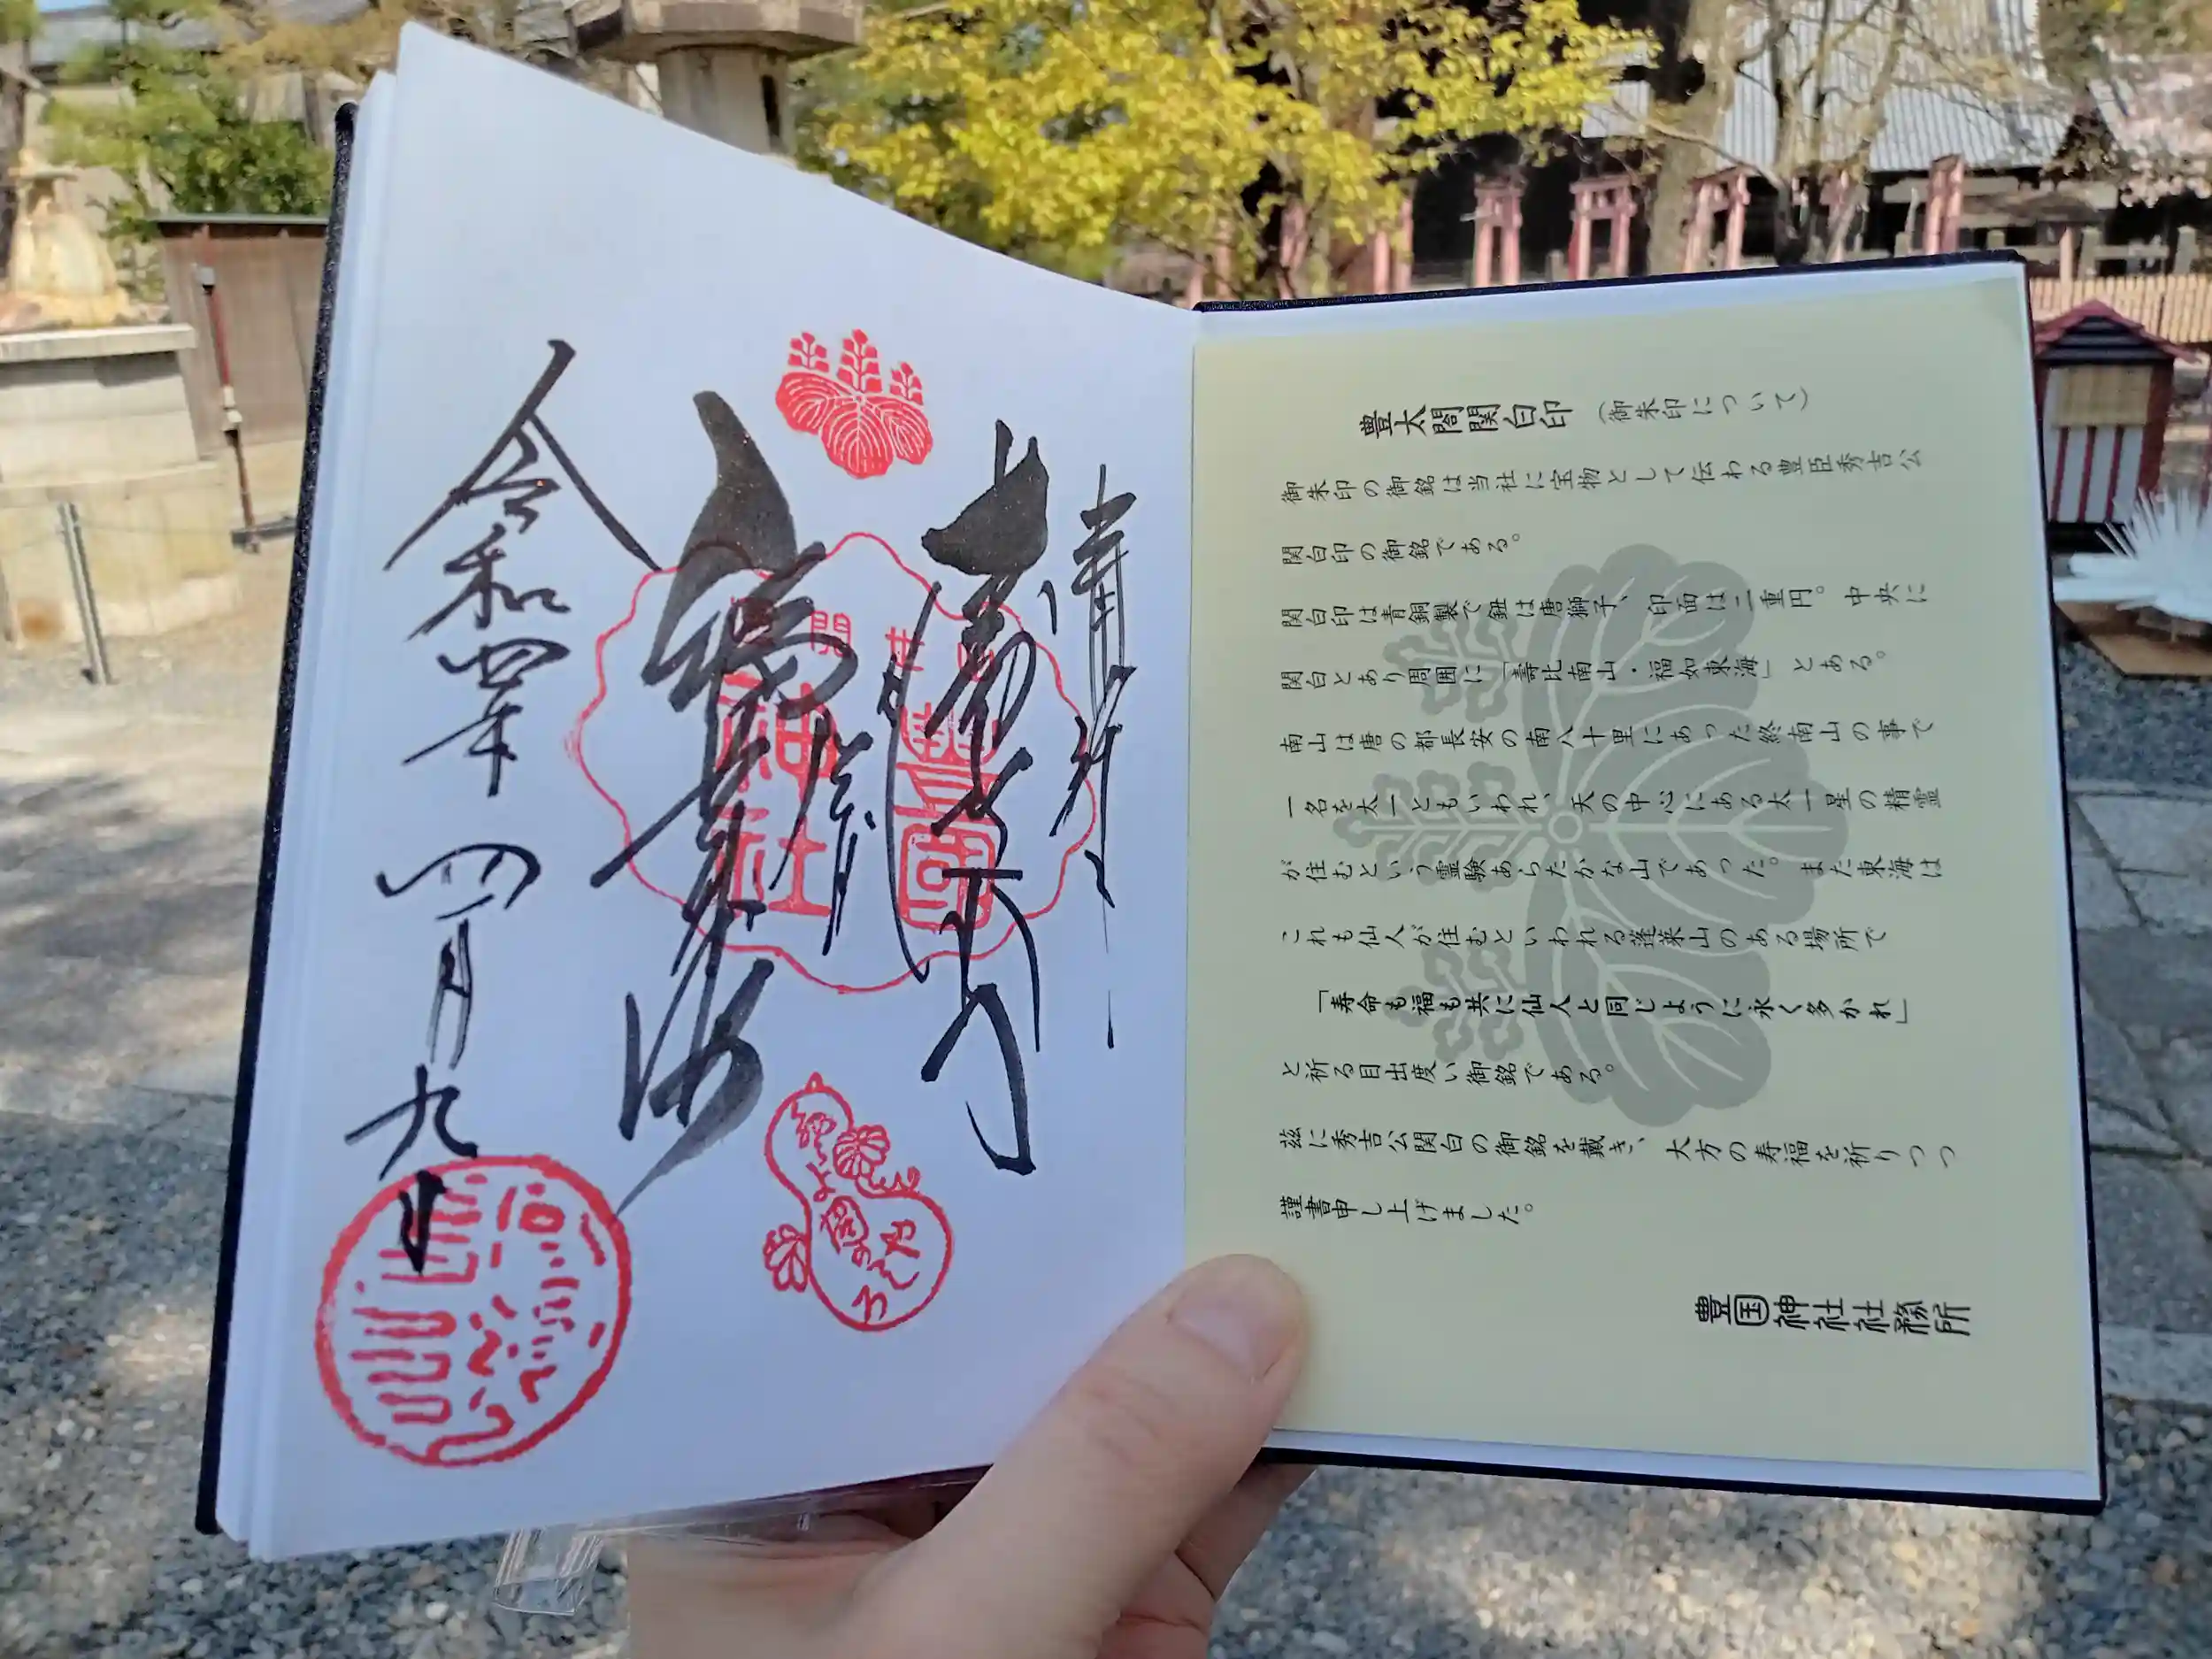 奉拝
壽比南山
福如東海
令和四年四月九日
豊國
神社
豊太閤関白印(御朱印について)
御朱印の御銘は当社に宝物として伝わる豊臣秀吉公
関白印の御銘である。
関白印は青銅製で鈕は唐獅子、印面は二重円。中央に
関白とあり周囲に「壽比南山・福如東海」とある。
南山は唐の都長安の南八十里にあった終南山の事で
一名を太一ともいわれ、天の中心にある太一星の精霊
が住むという霊験あらたかな山であった。また東海は
これも仙人が住むといわれる蓬莱山のある場所で
「寿命も福も共に仙人と同じように永く多かれ」
と祈る目出度い御銘である。
茲に秀吉公関白の御銘を戴き、大方の寿福を祈りつつ
謹書申し上げました。
豊国神社社務所